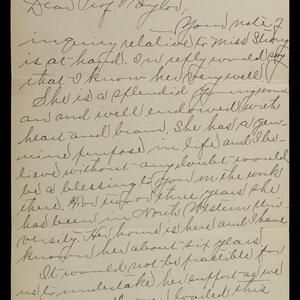 Dear Prof. Taylor,
Your note of
inquiry relative to Miss Strong
is at hand. In reply would say
that I know her very well.
She is a splendid young wom-
an and well endowed with
heart and brain. She has a gen-
uine purpose in life and I be-
lieve without any doubt would
be a blessing to you in the work
there. For two or three years she
has been in North Western Uni-
versity. Her home is here and I have
known her about six years.
It would not be practicable for
us to undertake her support as we
us loaded this